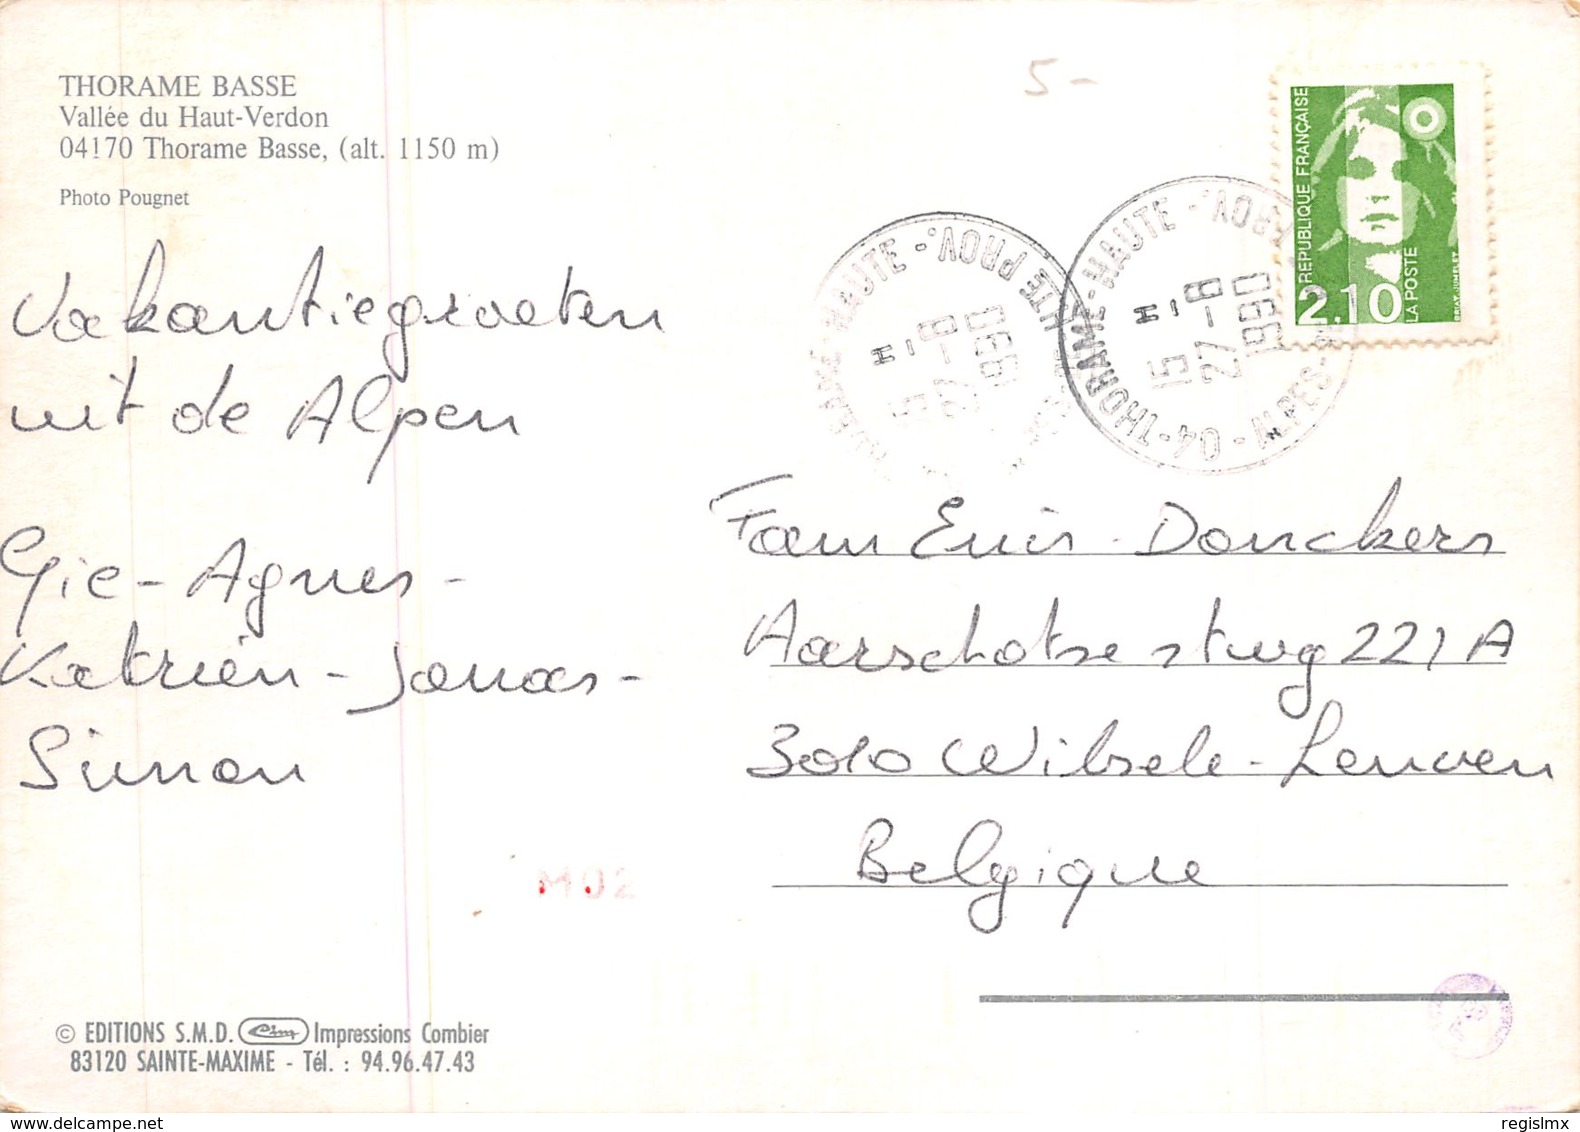 THORAME BASSE
Vallée du Haut-Verdon
04170 Thorame Basse, (alt. 1150 m)
Photo Pougnet
5-
RÉPUBLIQUE FRANÇAISE
2,10
LA POSTE
BRIAT.JUMELET
04-THORAME-HAUTE
15 H
27-8
1990
HAUTE
PROV.
Vakantiegroeten
uit de Alpen
Gie-Agnes-
Katrien-Jonas-
Simon
Fam Enis-Donckers
Aarschotse stwg 221 A
3010 Wilsele-Leuven
Belgique
M02
© EDITIONS S.M.D. Cim Impressions Combier
83120 SAINTE-MAXIME - Tél. : 94.96.47.43
delcampe.net
regislmx